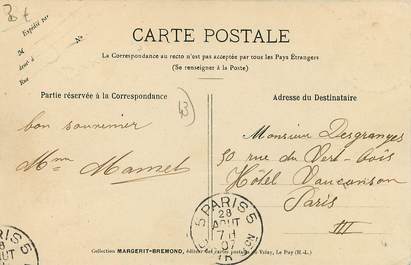 3 €
Expédié par
M
demt à
Rue
CARTE POSTALE
La Correspondance au recto n'est pas acceptée par tous les Pays Étrangers
(Se renseigner à la Poste)
Partie réservée à la Correspondance
Adresse du Destinataire
bon souvenier
Mme Mamet
Monsieur Desgranges
50 rue du Vert-bois
Hôtel Vaucanson
Paris
III
PARIS
5
28
AOUT
07
Collection MARGERIT-BREMOND, éditeur des cartes postales du Velay, Le Puy (H.-L.)